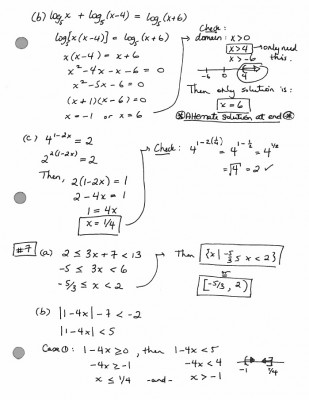 (b) log₅x + log₅(x-4) = log₅(x+6)
log₅[x(x-4)] = log₅(x+6)
x(x-4) = x+6
x²-4x-x-6 = 0
x²-5x-6 = 0
(x+1)(x-6) = 0
x = -1 or x = 6
Check:
domain: x > 0
x > 4 → only need this.
x > -6
-6 0 4
Then only solution is:
x = 6
Alternate solution at end
(c) 4^(1-2x) = 2
2^(2(1-2x)) = 2
Then, 2(1-2x) = 1
2-4x = 1
1 = 4x
x = 1/4
Check: 4^(1-2(1/4)) = 4^(1-1/2) = 4^(1/2)
= √4 = 2 ✓
#7 (a) 2 ≤ 3x+7 < 13
-5 ≤ 3x < 6
-5/3 ≤ x < 2
Then {x | -5/3 ≤ x < 2}
[-5/3, 2)
(b) |1-4x| - 7 < -2
|1-4x| < 5
Case ①: 1-4x ≥ 0, then 1-4x < 5
-4x ≥ -1 -4x < 4
x ≤ 1/4 -and- x > -1
-1 1/4